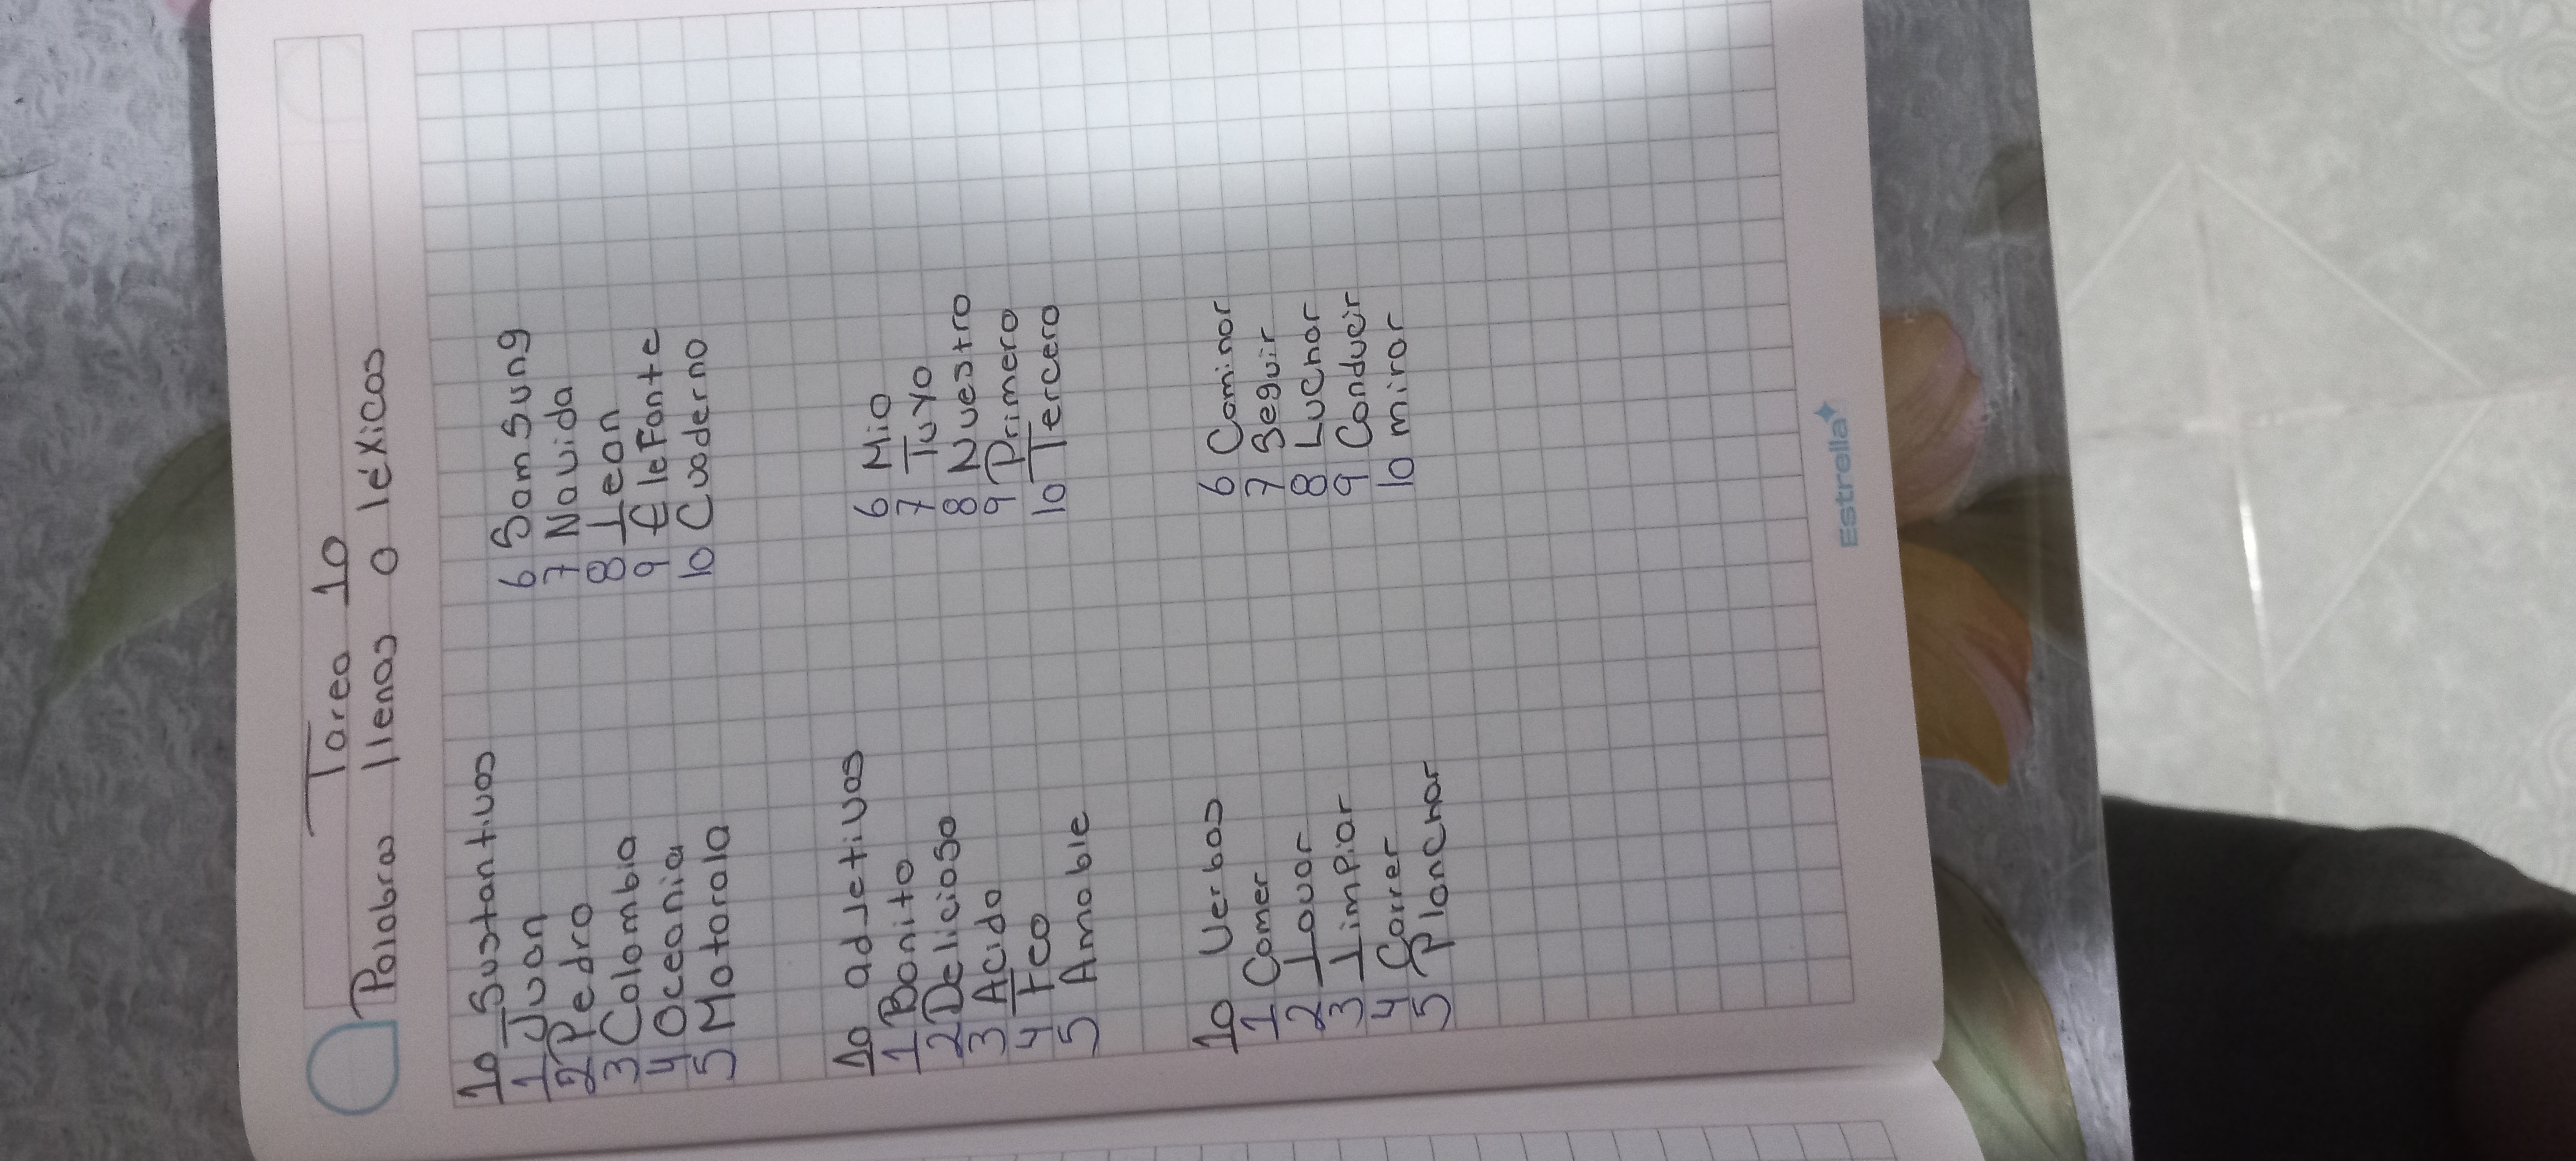 Tarea 10
Palabras llenas o léxicas
10 Sustantivos
1 Juan
2 Pedro
3 Colombia
4 Oceania
5 Motorola
6 Samsung
7 Navida
8 Leon
9 Elefante
10 Cuaderno
10 adjetivos
1 Bonito
2 Delicioso
3 Acido
4 Feo
5 Amable
6 Mio
7 Tuyo
8 Nuestro
9 Primero
10 Tercero
10 Verbos
1 Comer
2 Lavar
3 Limpiar
4 Correr
5 Planchar
6 Caminar
7 Seguir
8 Luchar
9 Conducir
10 mirar
Estrella